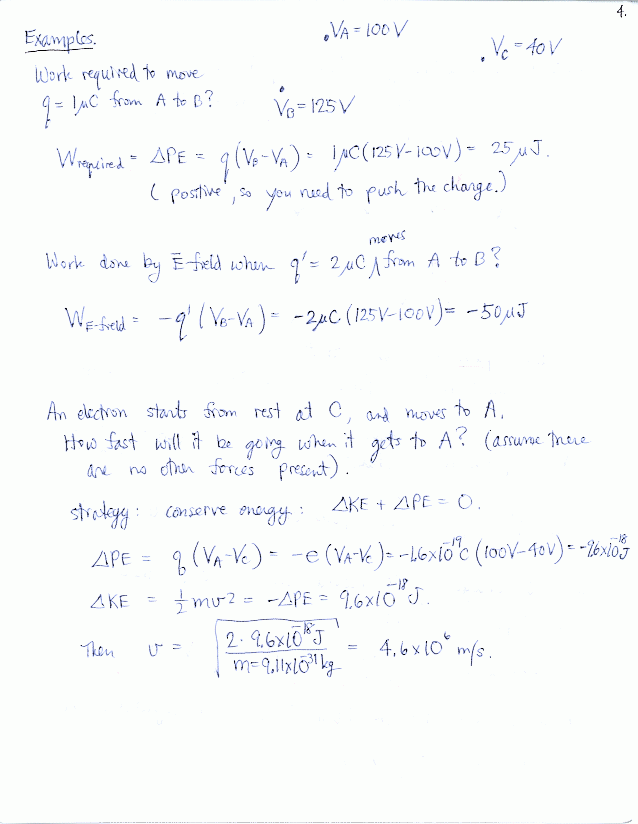 4.
Examples.
. V_A = 100V
. V_C = 40V
Work required to move
q = 1μC from A to B?
V_B = 125V
W_required = ΔPE = q(V_B-V_A) = 1μC(125V-100V) = 25μJ.
( positive, so you need to push the charge.)
Work done by E-field when q' = 2μC moves from A to B?
W_E-field = -q'(V_B-V_A) = -2μC(125V-100V) = -50μJ
An electron starts from rest at C, and moves to A.
How fast will it be going when it gets to A? (assume there
are no other forces present).
strategy: conserve energy: ΔKE + ΔPE = 0.
ΔPE = q(V_A-V_C) = -e(V_A-V_C) = -1.6x10^-19 C (100V-40V) = -9.6x10^-18 J
ΔKE = 1/2 mv2 = -ΔPE = 9.6x10^-18 J.
Then v = √(2·9.6x10^-18 J / m=9.11x10^-31 kg) = 4.6x10^6 m/s.